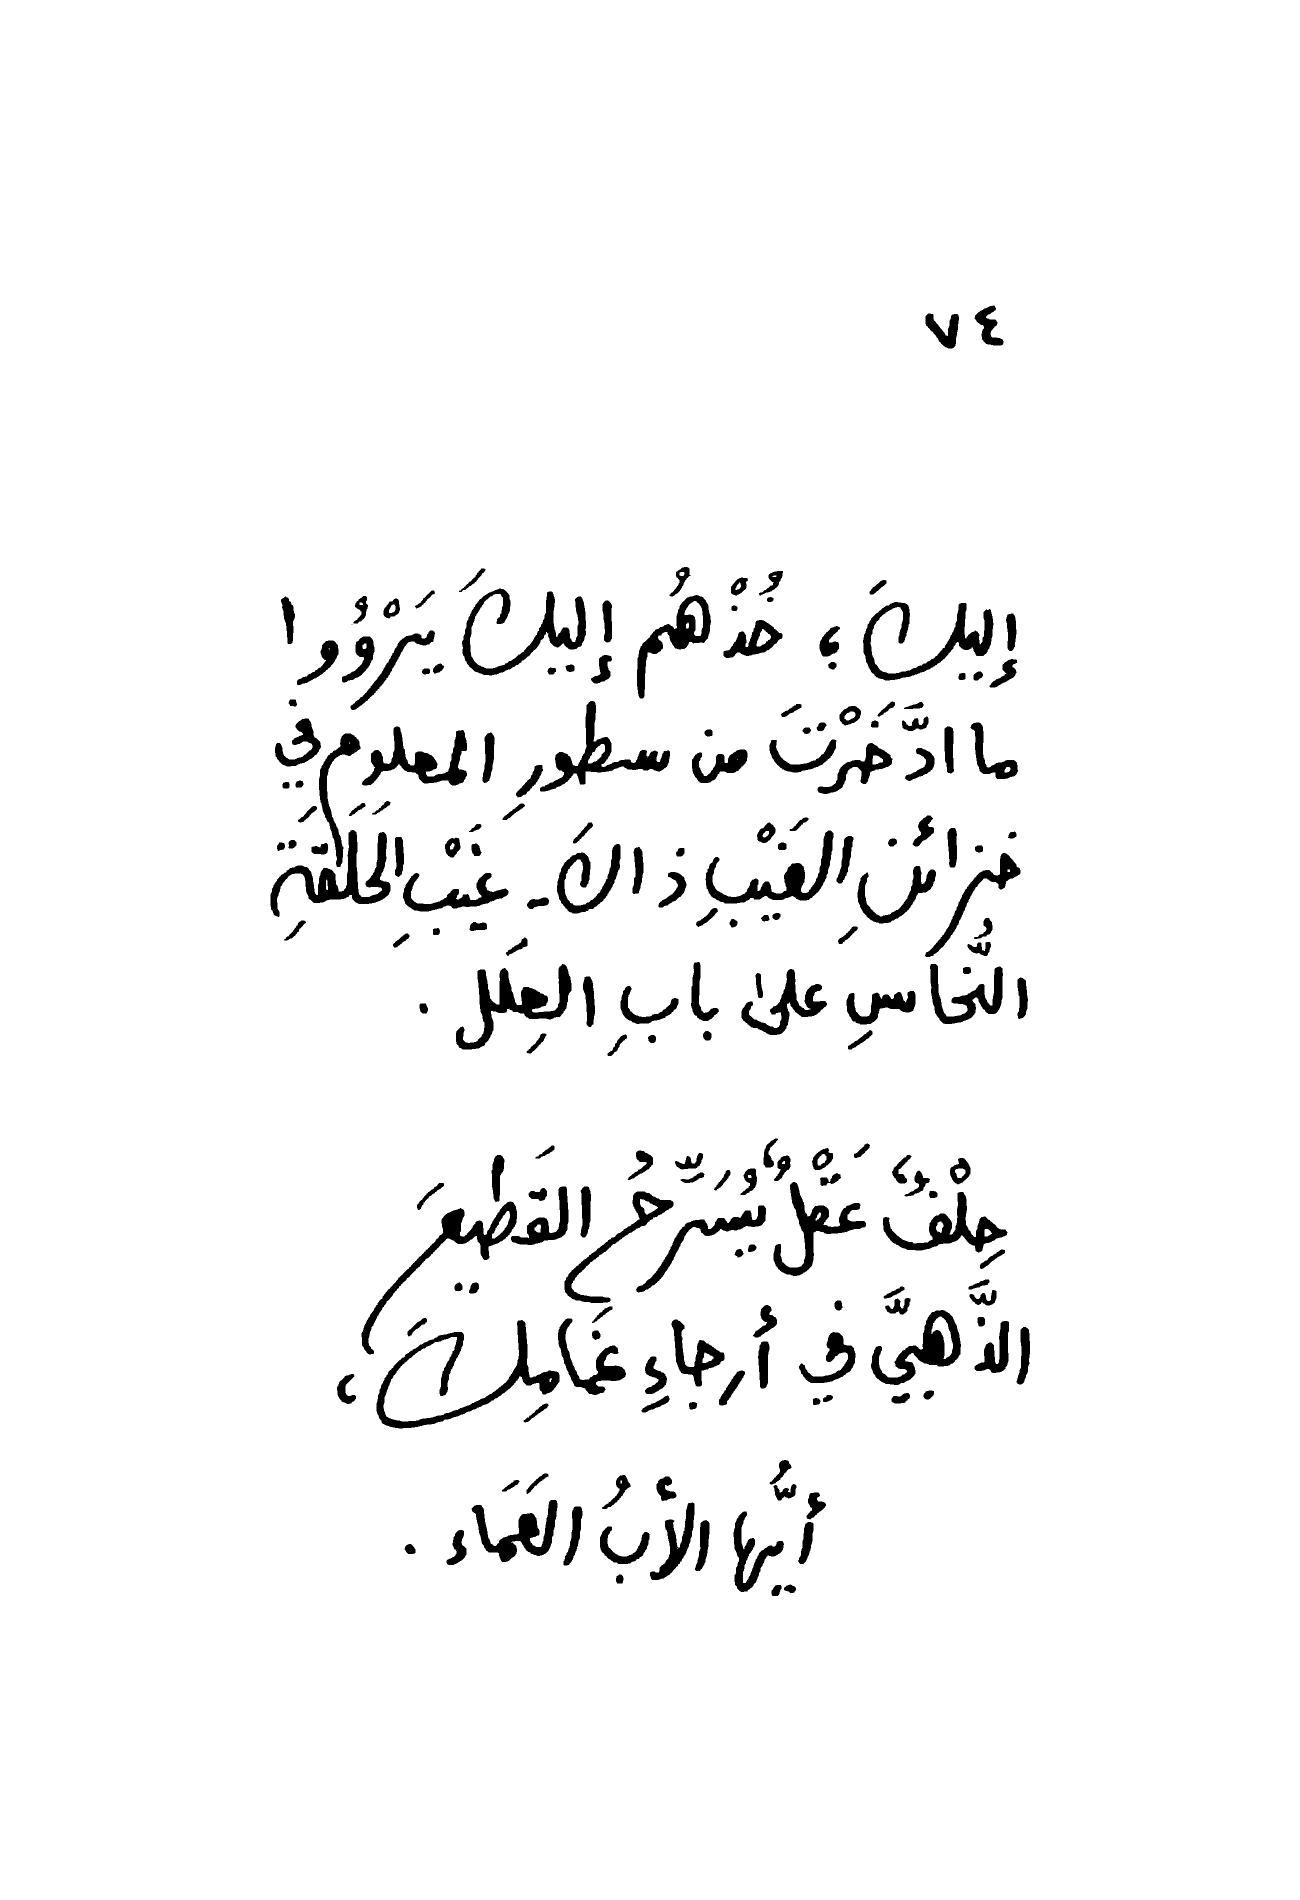 ٧٤
إليكَ ؛ خُذْهُم إليكَ يَرْوُوا
ما ادَّخَرْتَ من سطورِ المعلوم في
خزائنِ الغَيْبِ ذاكَ ـ غَيْبِ الحَلَقَةِ
النُّحاسِ على بابِ العِلَل .
حِلْفٌ عَقْلٌ يُسَرِّحُ القَطيعَ
الذَّهبيَّ في أرجاءِ غَمامِكَ ،
أيُّها الأبُ العَمَاء .